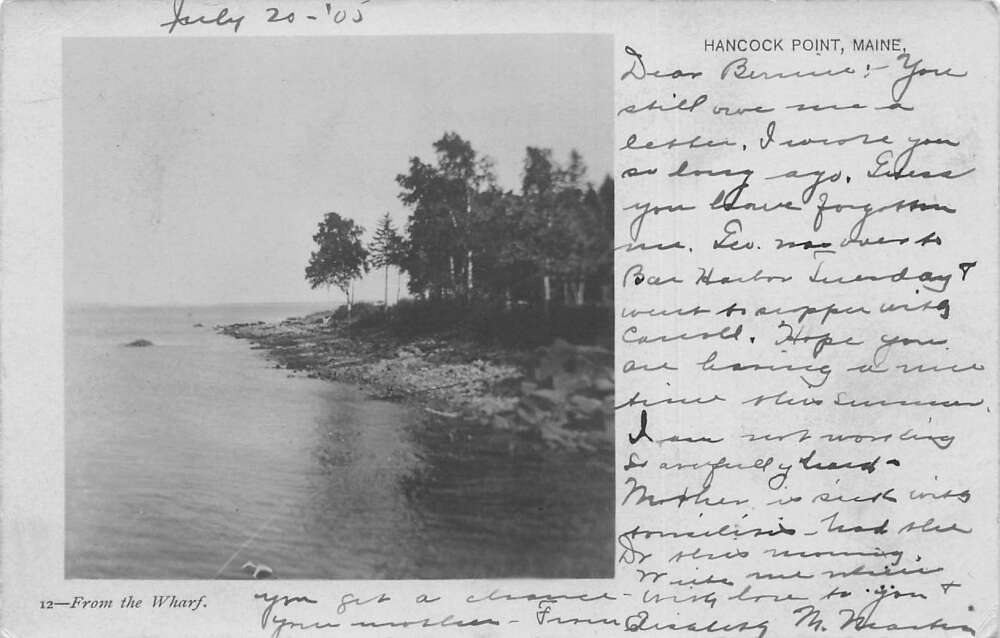 July 20-'05
HANCOCK POINT, MAINE.
Dear Bernice:- You
still owe me a
letter. I wrote you
so long ago. Guess
you have forgotten
me. Geo. was over to
Bar Harbor Tuesday &
went to supper with
Carroll. Hope you
are having a nice
time this summer.
I am not working
so awfully hard-
Mother is sick with
tonsilitis - had the
Dr this morning.
Write me when
you get a chance - with love to you &
your mother - From Elizabeth M.
12—From the Wharf.